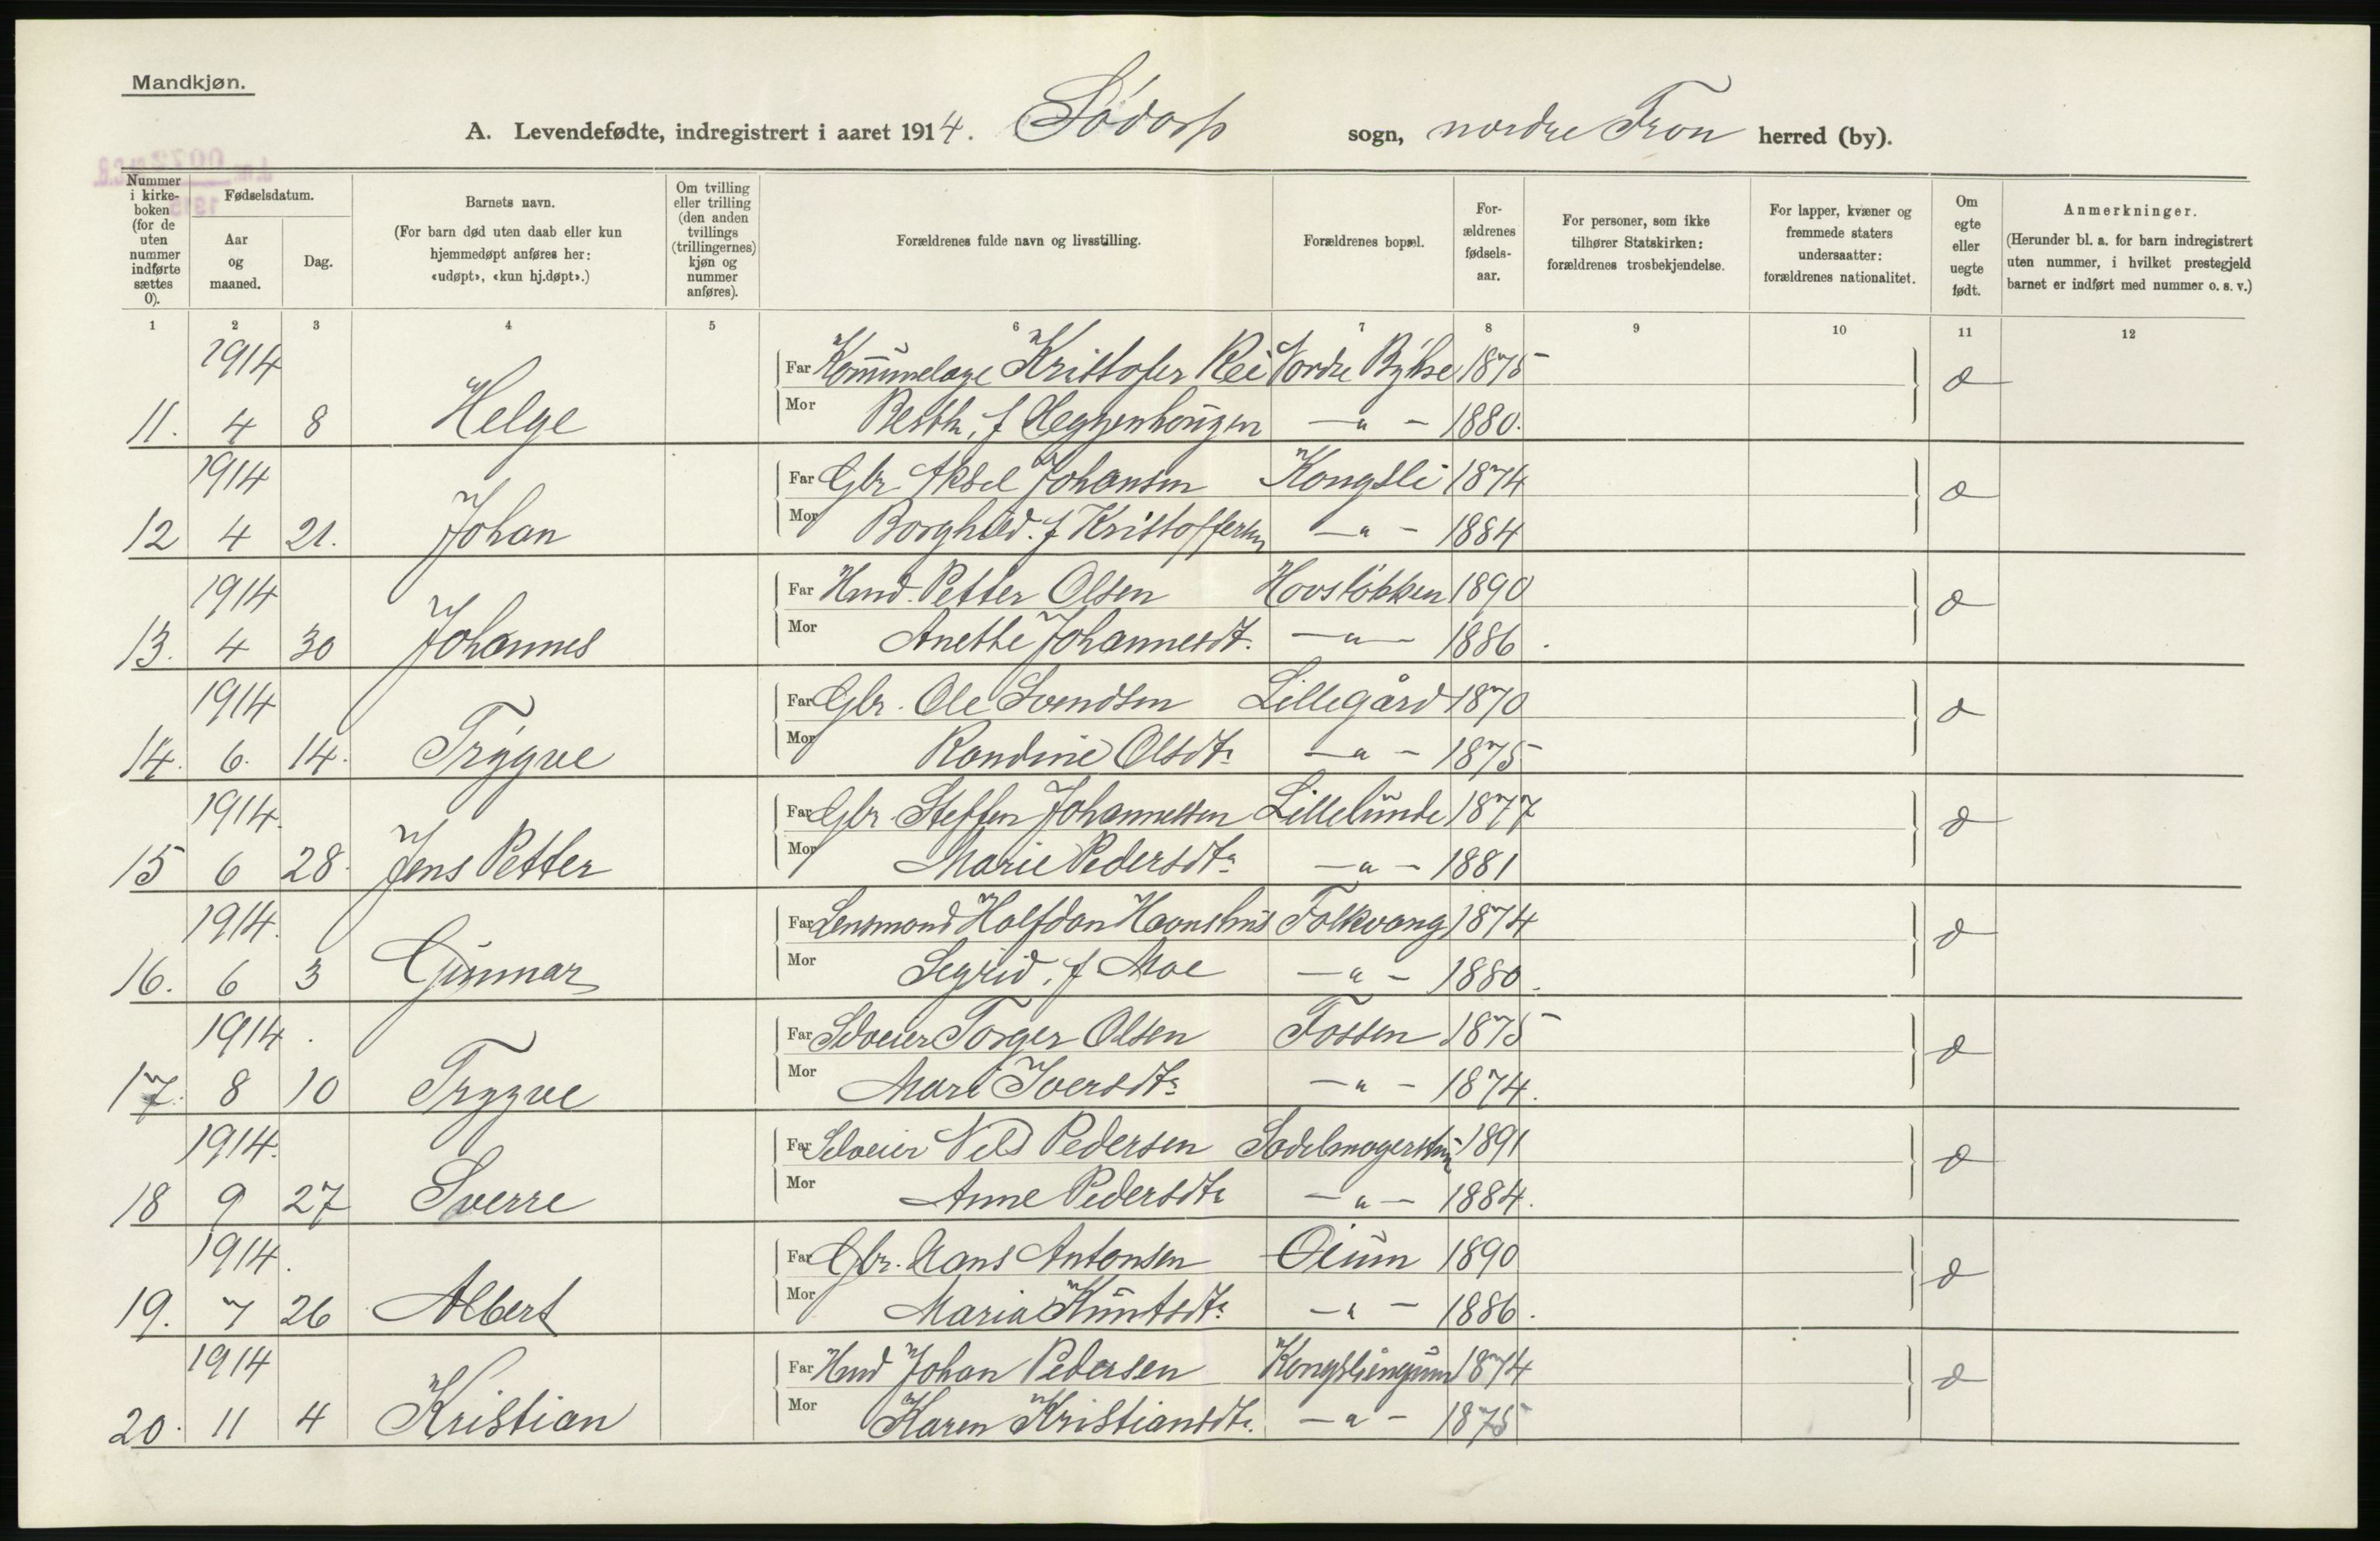 Mandkjøn.
A. Levendefødte, indregistrert i aaret 1914. Sødorp sogn, nordre Fron herred (by).
Nummer i kirkeboken (for de uten nummer indførte sættes 0).
Fødselsdatum.
Aar og maaned.
Dag.
Barnets navn.
(For barn død uten daab eller kun hjemmedøpt anføres her: «udøpt», «kun hj.døpt».)
Om tvilling eller trilling (den anden tvillings (trillingernes) kjøn og nummer anføres).
Forældrenes fulde navn og livsstilling.
Forældrenes bopæl.
Forældrenes fødselsaar.
For personer, som ikke tilhører Statskirken: forældrenes trosbekjendelse.
For lapper, kvæner og fremmede staters undersaatter: forældrenes nationalitet.
Om egte eller uegte født.
Anmerkninger.
(Herunder bl. a. for barn indregistrert uten nummer, i hvilket prestegjeld barnet er indført med nummer o. s. v.)
1 2 3 4 5 6 7 8 9 10 11 12
1914 Far Kristofer Nordre 1875
11. 4 8 Helge Mor f Heggenhougen — " — 1880.
1914 Far Gbr. Aksel Johansen Kongsli 1874
12 4 21. Johan Mor Borghild. f Kristoffersen — " — 1884
1914 Far Hmd. Petter Olsen Hovsløkken 1890
13. 4 30 Johannes Mor Anethe Johannesdt. — " — 1886.
1914 Far Gbr. Ole Svendsen Lillegård 1870
14. 6. 14. Trygve Mor Randine Olsdt. — " — 1875
1914. Far Gbr. Steffen Johannessen Lillelunde 1877
15 6 28. Jens Petter Mor Marie Pedersdt. — " — 1881
1914. Far Lensmand Halfdan Folkvang 1874
16. 6 3 Gunnar Mor Sigrid. f Moe — " — 1880.
1914. Far Selveier Torger Olsen Fossen 1875
17. 8 10 Trygve Mor Mari Iversdt. — " — 1874.
1914. Far Selveier Nils Pedersen 1891
18 9 27 Sverre Mor Anne Pedersdt. — " — 1884.
1914. Far Gbr. Hans Antonsen Oium 1890
19. 7 26 Albert Mor Maria Kuntsdt. — " — 1886.
1914 Far Hmd Johan Pedersen 1874
20. 11 4 Kristian Mor Karen Kristiansdt. — " — 1875